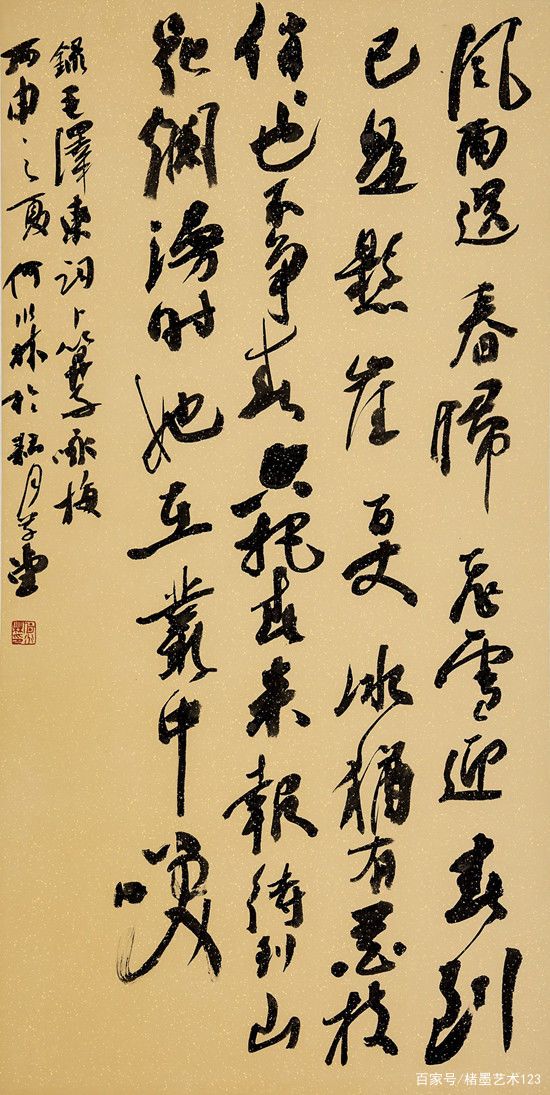 風雨送春歸飛雪迎春到
已是懸崖百丈冰猶有花枝
俏也不争春只把春来報待到山
花爛漫時她在叢中笑
録毛澤東詞卜算子咏梅
丙申之夏何川林於月草堂
百家号/楮墨艺术123